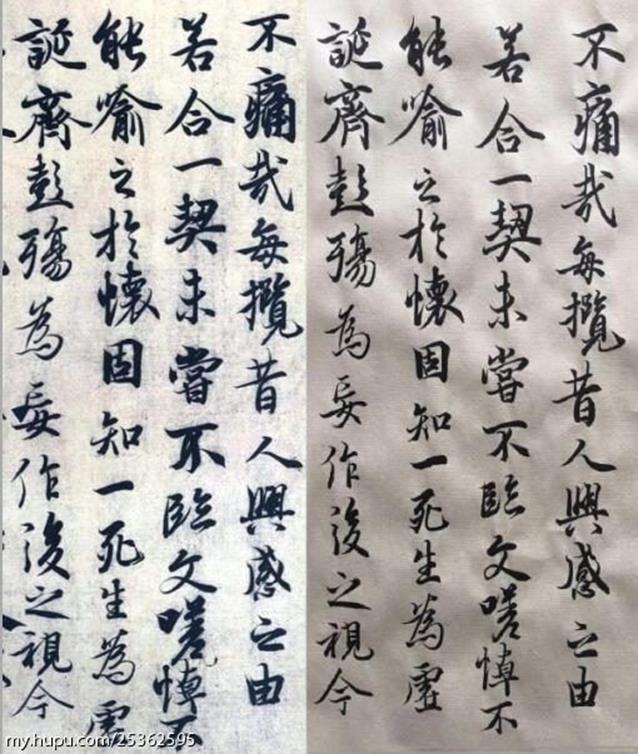 不痛哉每攬昔人興感之由
若合一契未嘗不臨文嗟悼不
能喻之於懷固知一死生為虛
誕齊彭殤為妄作後之視今
不痛哉每攬昔人興感之由
若合一契未嘗不臨文嗟悼不
能喻之於懷固知一死生為虛
誕齊彭殤為妄作後之視今
my.hupu.com/25362595